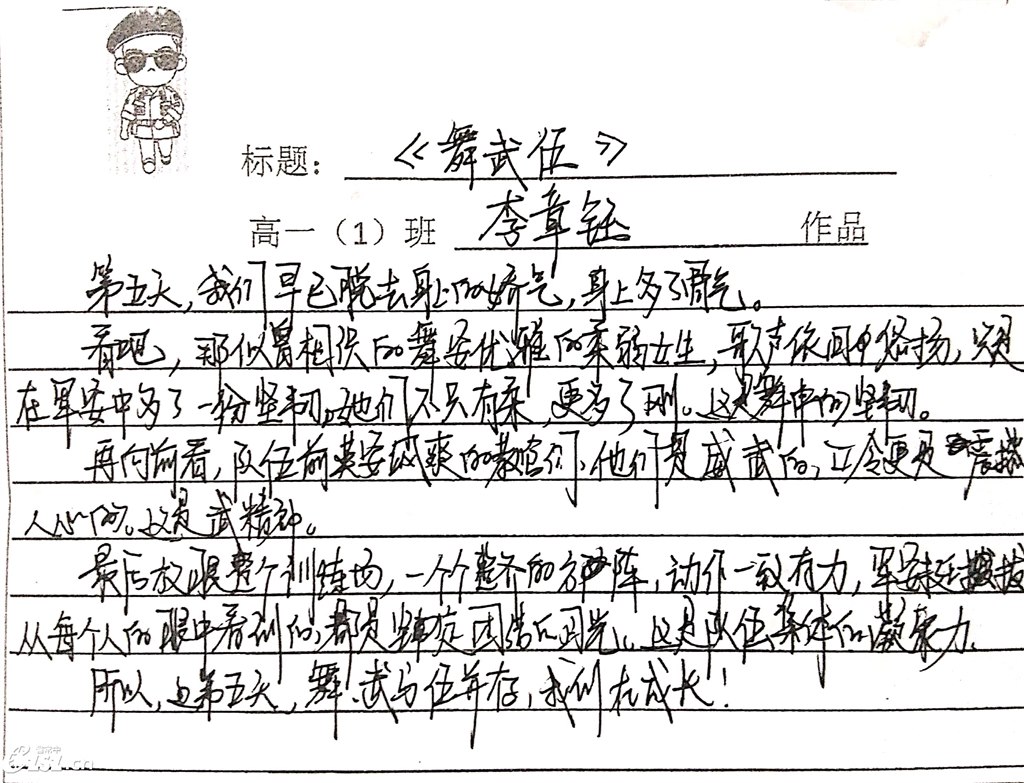 标题：《舞武伍》
高一（1）班 李章钰 作品
第五天，我们早已脱去身上的娇气，身上多了刚气。
看吧，那似曾相识的舞姿优雅的柔弱女生，歌声依旧悠扬，只是
在军姿中多了一份坚韧。她们不只有柔，更多了刚。这是舞中的坚韧。
再向前看，队伍前英姿飒爽的教官们，他们是威武的，口令更是震撼
人心的。这是武精神。
最后放眼整个训练场，一个个整齐的方阵，动作一致有力，军姿挺拔
从每个人的眼中看到的，都是团结的。这是队伍集体的凝聚力。
所以，第五天，舞、武与伍并存，我们在成长！